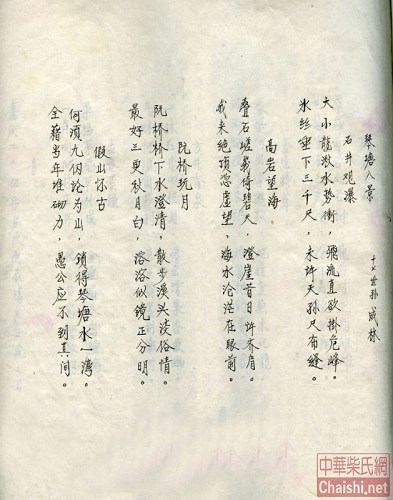 琴塘八景 十七世孙 咸林
石井观瀑
大小龍湫水勢衝，飛流直欲掛危峰。
水丝垂下三千尺，未许天孙尺布縫。
高岩望海
叠石嵯峩倚碧天，澄崖昔日许齐肩。
我来绝顶凭虚望，海水沧茫在眼前。
阮桥玩月
阮桥桥下水澄清，散步溪头淡俗情。
最好三更秋月白，溶溶似镜正分明。
假山怀古
何须九仞论为山，鎖得琴塘水一湾。
全藉当年堆砌力，愚公应不到其间。
中華柴氏網
Chaishi.net